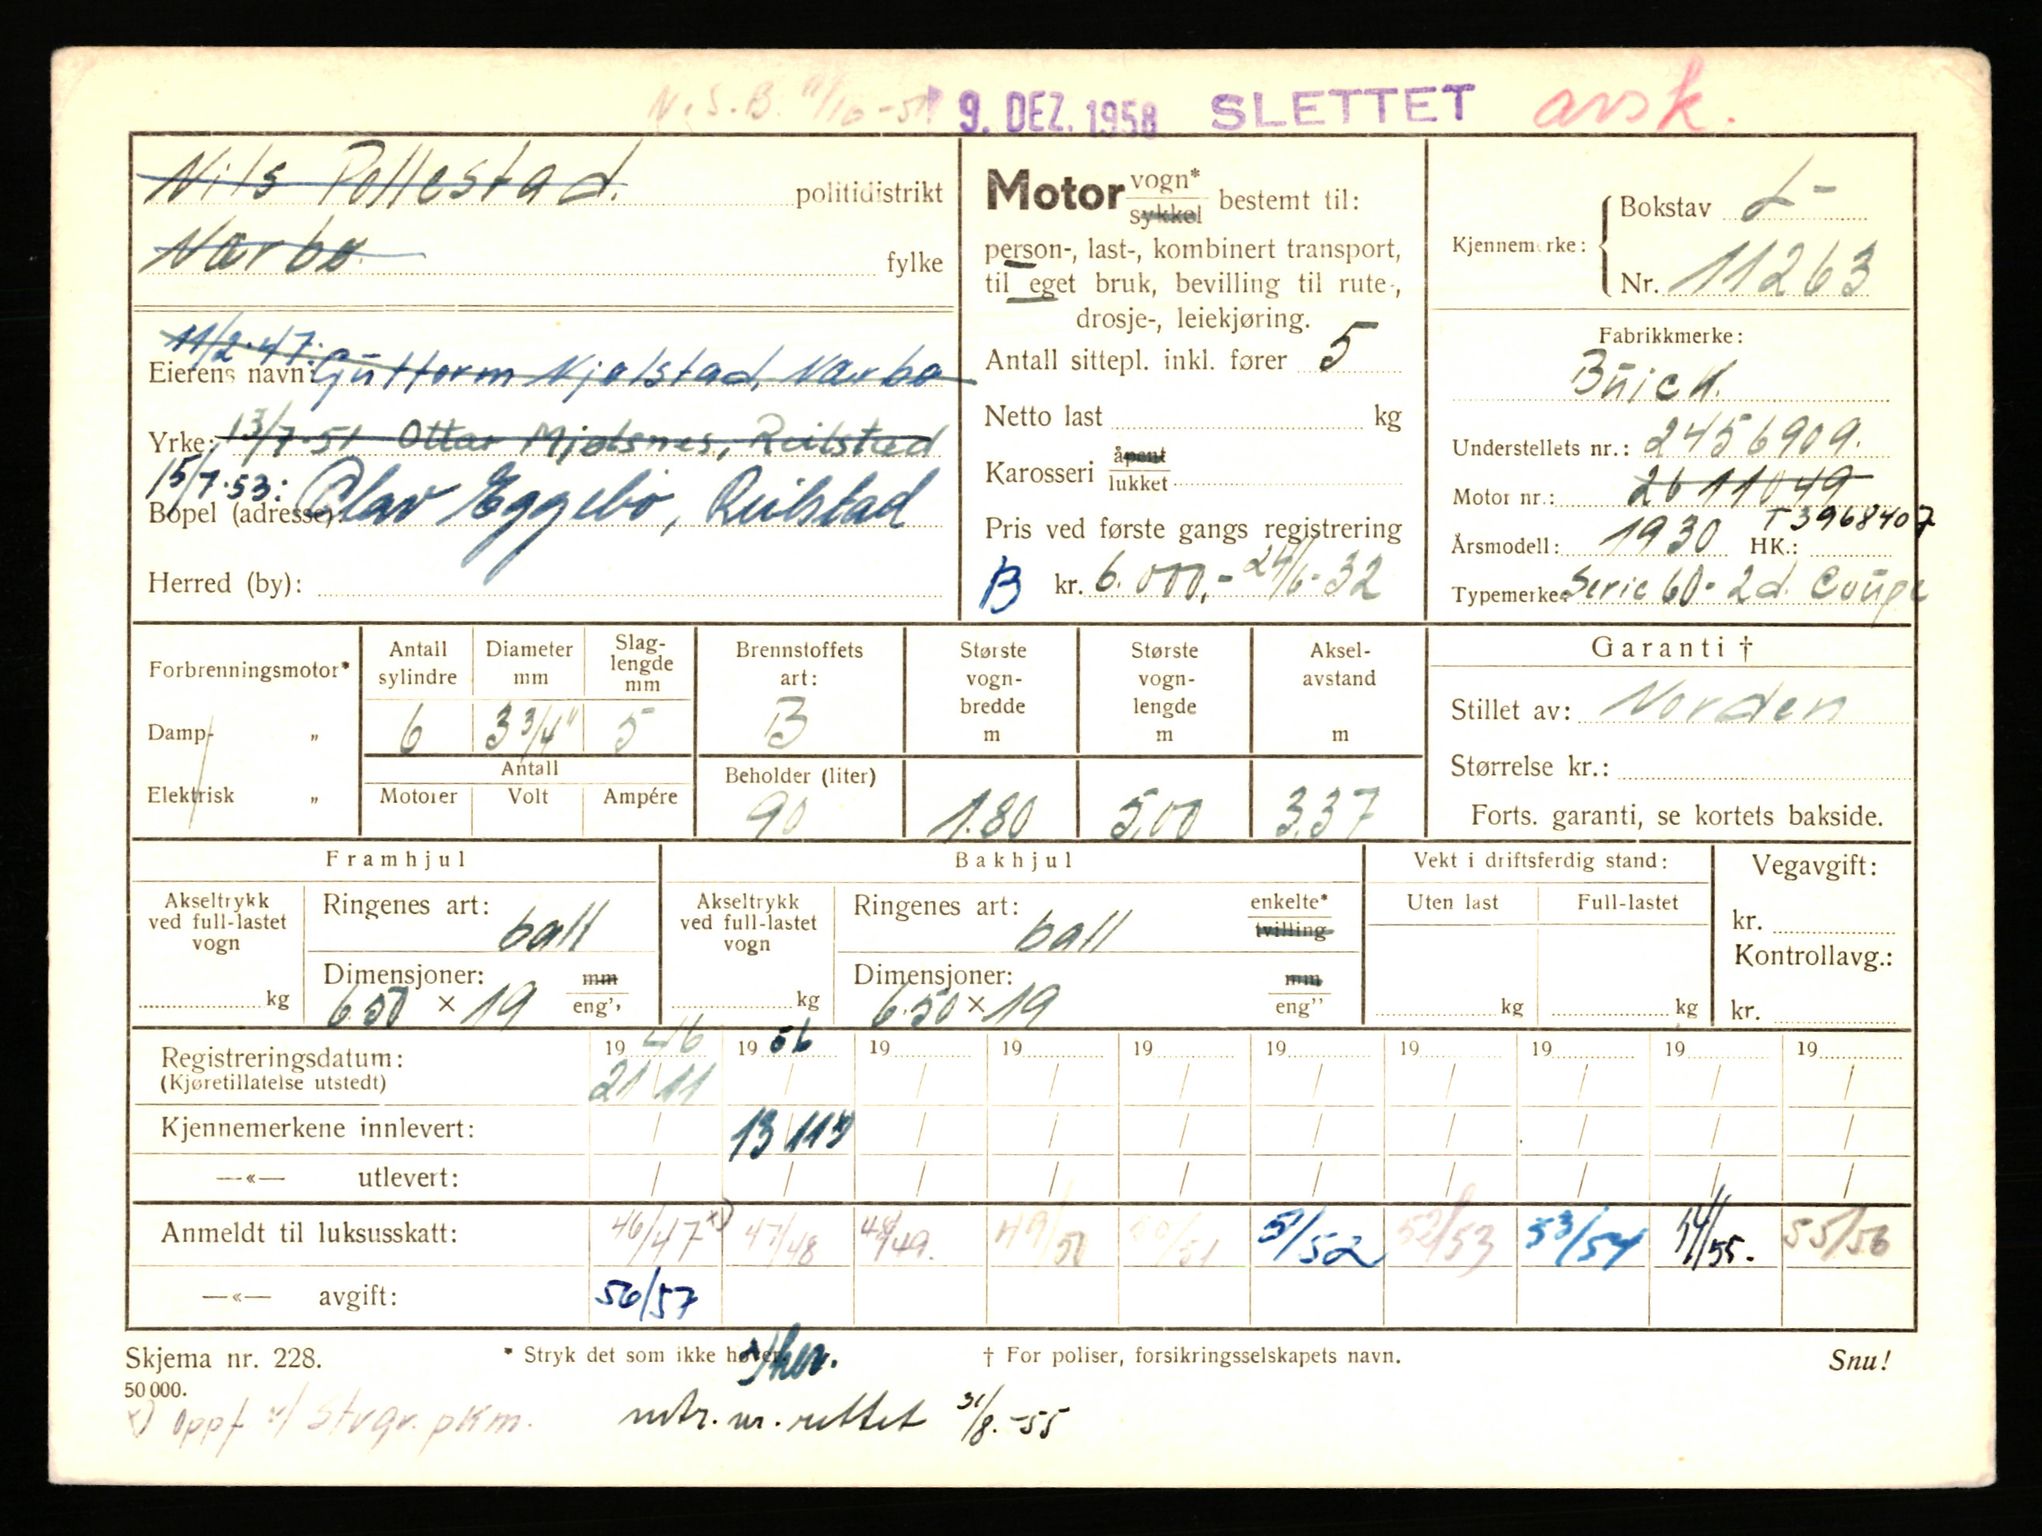 N.S.B. 9. DEZ. 1958 SLETTET avsk.
Nils Pollestad. politidistrikt
Nærbø fylke
11/2-47: Eierens navn: Guttorm Njølstad, Nærbø
Yrke: 13/7-51 Ottar Mjølsnes, Reilstad
15/7-53: Olav Eggebø, Reilstad
Bopel (adresse)
Herred (by):
Motor vogn* sykkel bestemt til:
person-, last-, kombinert transport,
til eget bruk, bevilling til rute-,
drosje-, leiekjøring.
Antall sittepl. inkl. fører 5
Netto last kg
Karosseri åpent lukket
Pris ved første gangs registrering
B kr. 6.000,- 24/6-32
Kjennemerke: Bokstav L-
Nr. 11263
Fabrikkmerke:
Buick.
Understellets nr.: 2456909.
Motor nr.: 2611049
T3968407
Årsmodell: 1930 HK.:
Typemerke: Serie 60- 2d. Coupe
Forbrenningsmotor*
Damp- „
Elektrisk „
Antall sylindre 6
Diameter mm 3 3/4"
Slag-lengde mm 5
Antall
Motorer Volt Ampére
Brennstoffets art: B
Beholder (liter) 90
Største vogn-bredde m 1.80
Største vogn-lengde m 5,00
Aksel-avstand m 3,37
Garanti †
Stillet av: Norden
Størrelse kr.:
Forts. garanti, se kortets bakside.
Framhjul
Akseltrykk ved full-lastet vogn kg
Ringenes art: ball
Dimensjoner: mm
6.50 × 19 eng''
Bakhjul
Akseltrykk ved full-lastet vogn kg
Ringenes art: ball enkelte* tvilling
Dimensjoner: mm
6.50 × 19 eng''
Vekt i driftsferdig stand:
Uten last Full-lastet
kg kg
Vegavgift:
kr.
Kontrollavg.:
kr.
Registreringsdatum: 19 46 19 56 19 19 19 19 19 19 19 19
(Kjøretillatelse utstedt) 21/11 / / / / / / / / /
Kjennemerkene innlevert: / 13/11 / / / / / / / /
—«— utlevert: / / / / / / / / / /
Anmeldt til luksusskatt: 46/47 x) 47/48 48/49. 49/50 50/51 51/52 52/53 53/54 54/55. 55/56
—«— avgift: 56/57
Skjema nr. 228. * Stryk det som ikke høver. † For poliser, forsikringsselskapets navn. Snu!
50 000.
x) Oppf v/ Stvgr. pkm. mtr. nr. rettet 31/8.-55